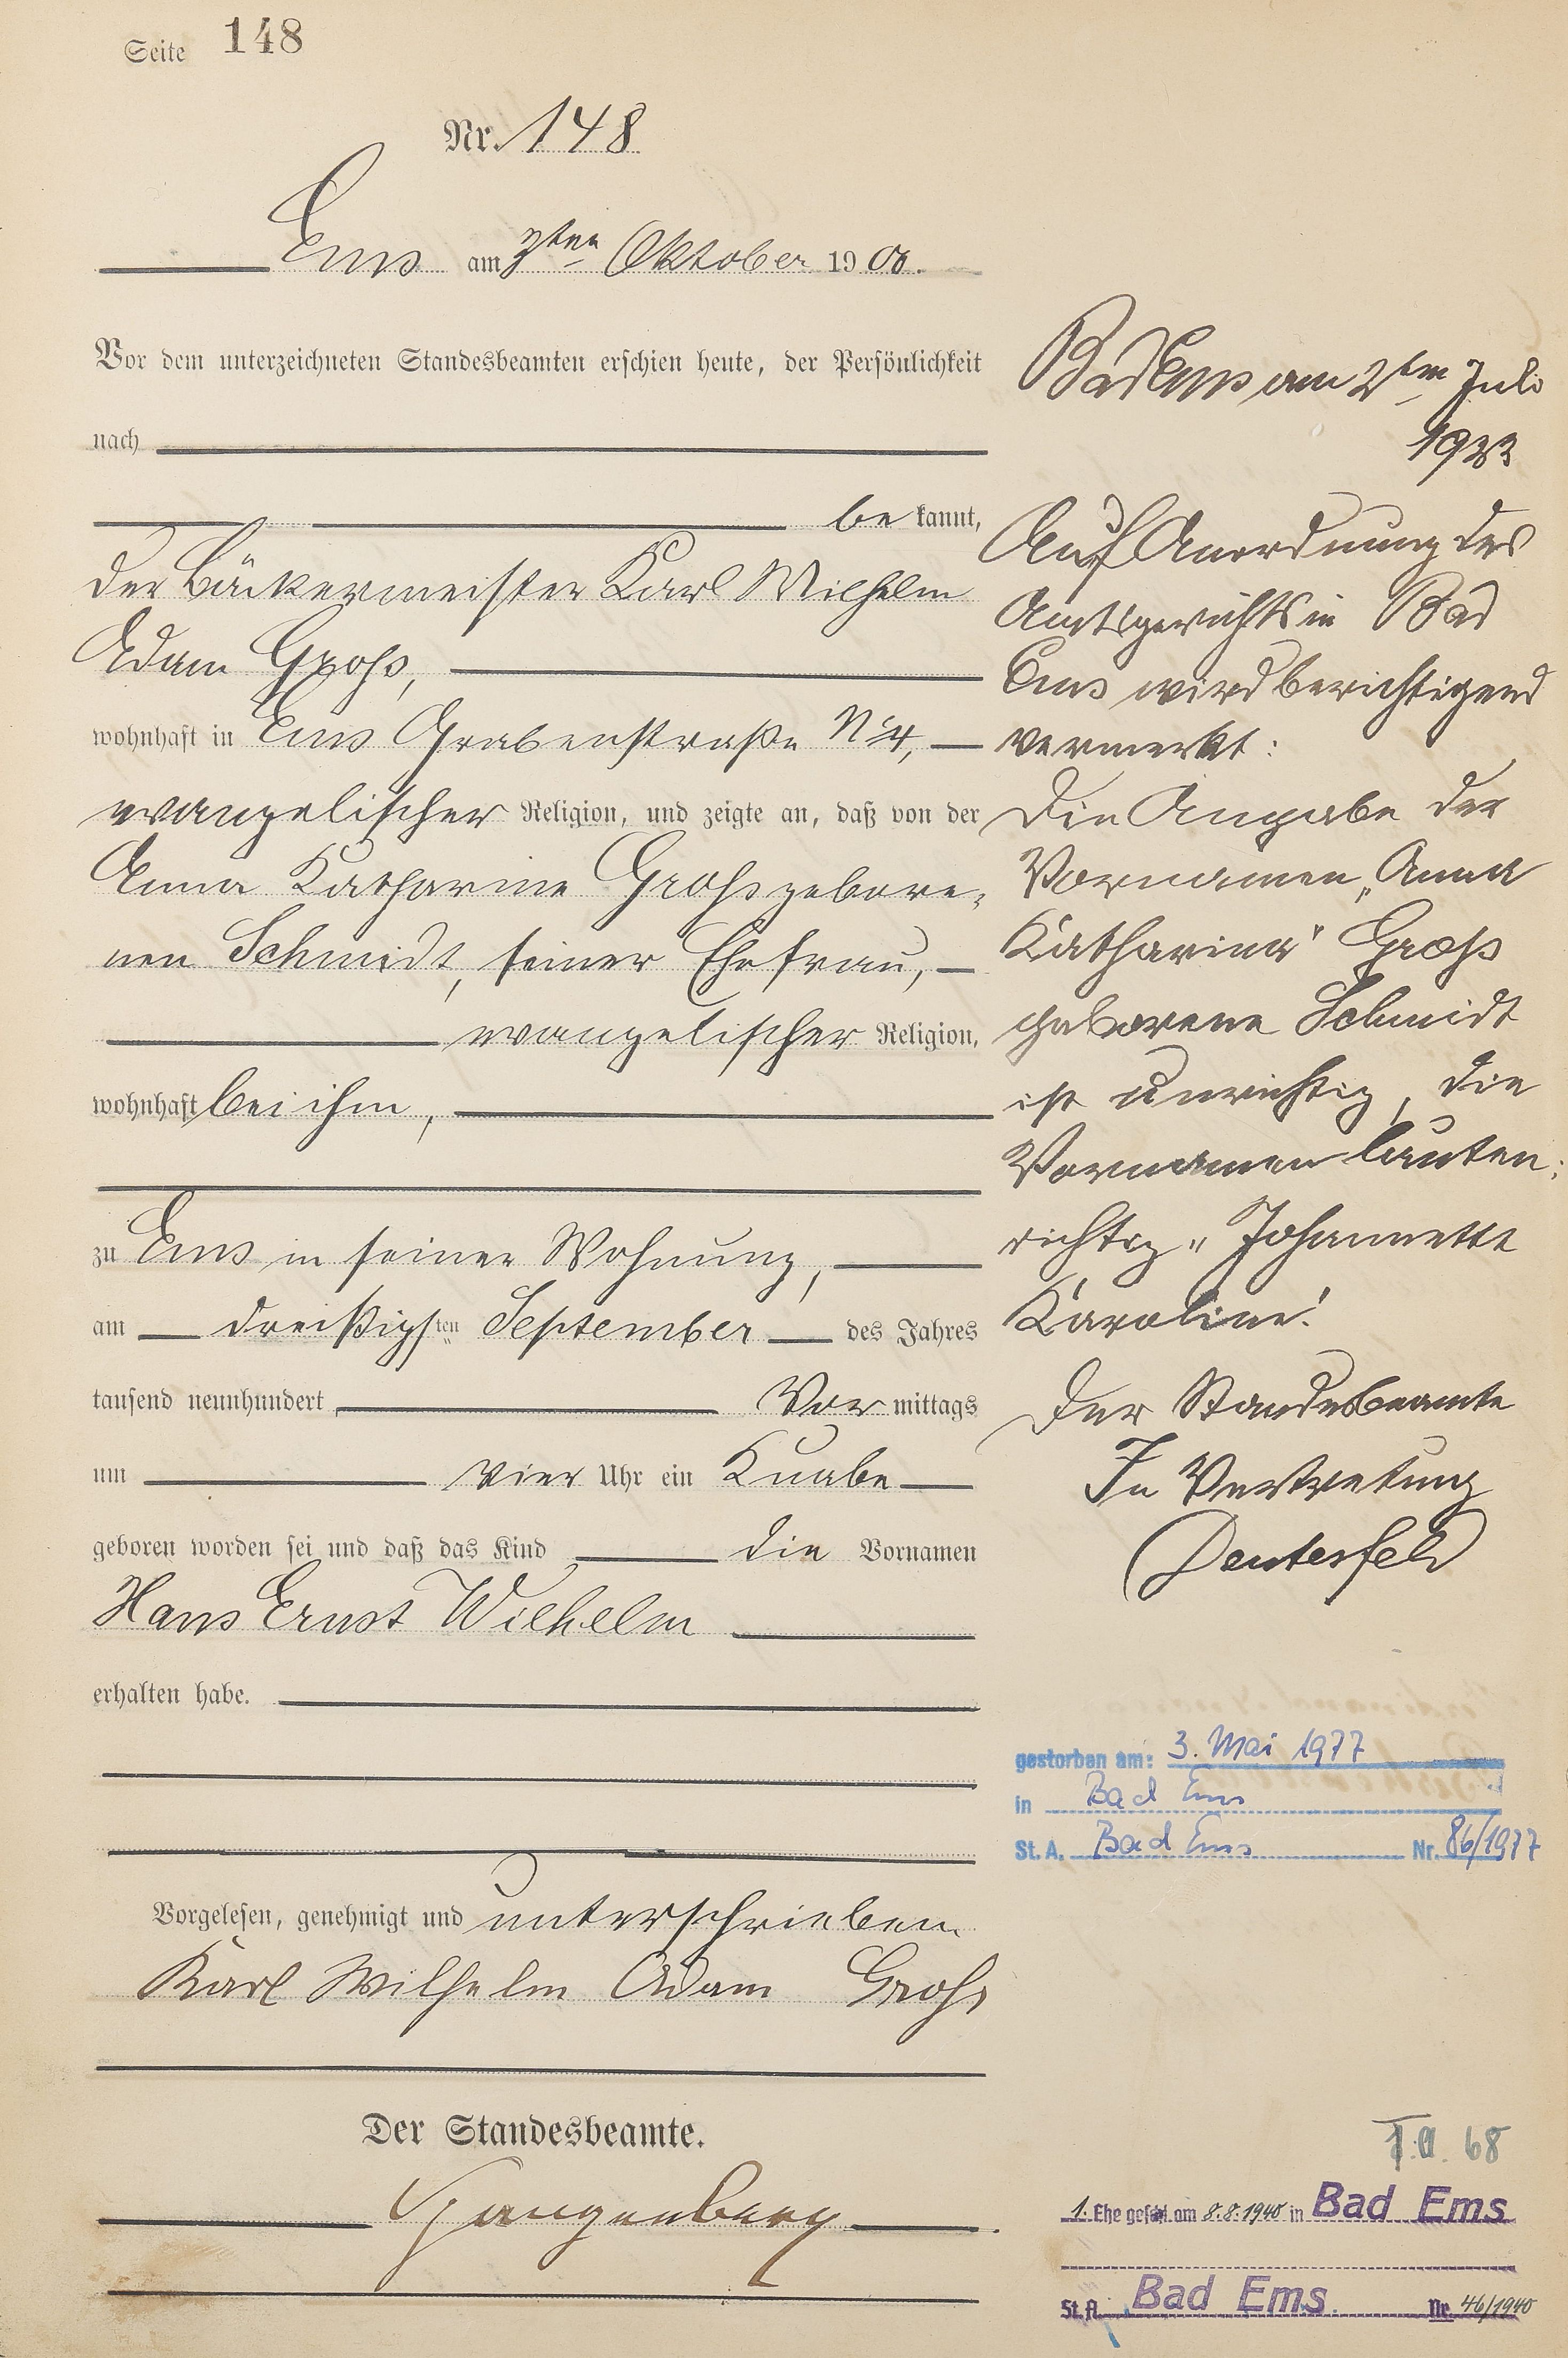 Seite 148
Nr. 148
Ems am 3ten Oktober 1900.
Vor dem unterzeichneten Standesbeamten erschien heute, der Persönlichkeit
nach
bekannt,
der Bäckermeister Karl Wilhelm
Adam Groß,
wohnhaft in Ems Grabenstraße No 4,
evangelischer Religion, und zeigte an, daß von der
Anna Katharine Groß gebore-
nen Schmidt, seiner Ehefrau,
evangelischer Religion,
wohnhaft bei ihm,
zu Ems in seiner Wohnung,
am dreißigsten September des Jahres
tausend neunhundert Vormittags
um vier Uhr ein Knabe
geboren worden sei und daß das Kind die Vornamen
Hans Ernst Wilhelm
erhalten habe.
Vorgelesen, genehmigt und unterschrieben.
Karl Wilhelm Adam Groß
Der Standesbeamte.
Bad Ems am 2ten Juli
Auf Anordnung des
Amtsgerichts in Bad
Ems wird berichtigend
vermerkt:
Die Angabe der
Vornamen „Anna
Katharina" Groß
geborene Schmidt
ist unrichtig, die
Vornamen lauten:
richtig „Johannette
Karoline".
Der Standesbeamte
In Vertretung
gestorben am: 3. Mai 1977
in Bad Ems
St. A. Bad Ems Nr. 86/1977
68
1. Ehe geschl. am 8.8.1940 in Bad Ems
St. A. Bad Ems Nr. 46/1940